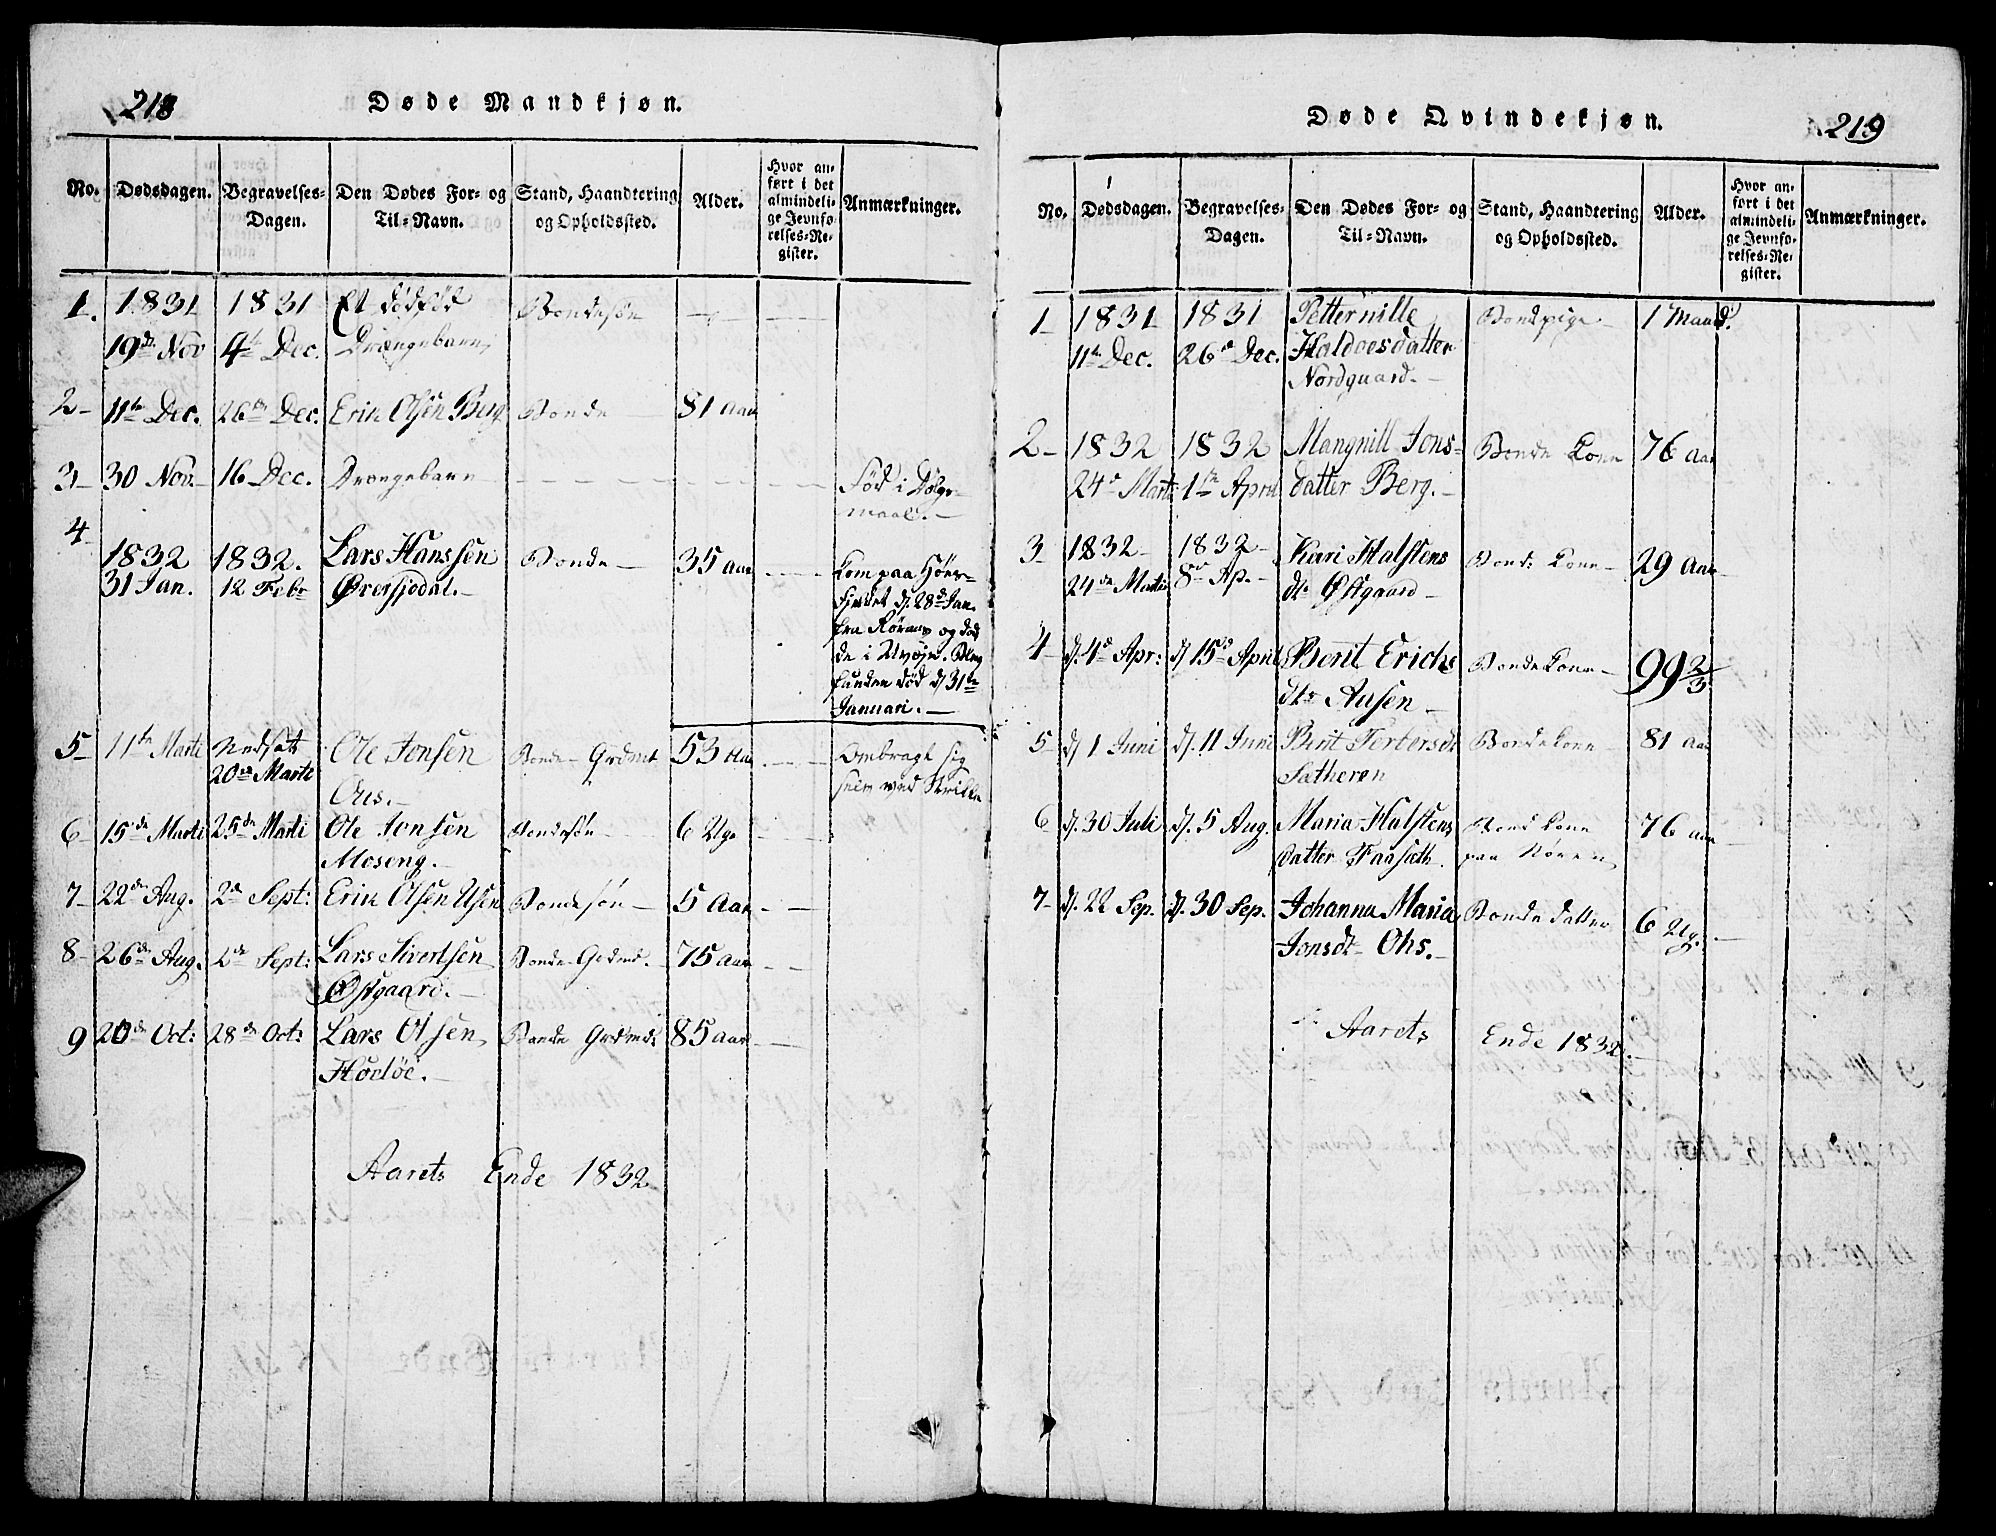 218
Døde Mandkjøn.
No. Dødsdagen. Begravelses-Dagen. Den Dødes For- og Til-Navn. Stand, Haandtering og Opholdssted. Alder. Hvor anført i det almindelige Jevnførelses-Register. Anmærkninger.
1. 1831 1831 Et dødfød Bondesøn
19de Nov 4de Dec. Drængebarn
2 11te Dec. 26de Dec. Erik Olsen Berg Bonde 81 Aar
3 30 Nov. 16 Dec. Drængebarn Fød i Dølgs-
maal.
4
1832 1832. Lars Hanssen Bonde 35 Aar Kom paa Høer-
31 Jan. 12 Febr
d. 28de Jan.
fra Røraas og død
de i . Blev
funden død d 31te
Januari.
5 11te Marti Nedsat Ole Jonsen Bonde-Grdmd 53 Aar Ombragt sig
20de Marti Aas. selv ved Strikke
6 15de Marti 25de Marti Ole Jonsen Bondesøn 6 Uge
Moseng.
7 22de Aug. 2de Sept: Erik Olsen Usen Bondesøn 5 Aar
8 26de Aug. 2de Sept: Lars Sivertsen Bonde-Grdmd. 75 Aar
Østgaard.
9 20de Oct: 28de Oct: Lars Olsen Bonde Grdmd: 85 Aar
Hodløe.
Aarets Ende 1832
219
Døde Qvindekjøn.
No. Dødsdagen. Begravelses-Dagen. Den Dødes For- og Til-Navn. Stand, Haandtering og Opholdssted. Alder. Hvor anført i det almindelige Jevnførelses-Register. Anmærkninger.
1 1831 1831 Petternille Bondepige 1 Maand.
11te Dec. 26de Dec. Haldoesdatter
Nordgaard.
2 1832 1832 Mangnill Jons- Bonde Kone 76 Aar
24de Marti 1te April datter Berg.
3 1832 1832 Kari Halstens Bonde Kone 29 Aar
24de Marti 8de Ap. dtr Østgaard
4 d. 4de Apr: d 15de April Berit Erichs Bonde Kone 99 2/3
dtr Ausen
5 d 1 Juni d. 11 Juni Berit Bonde Kone 81 Aar
Sætheren
6 d. 30 Juli d. 5 Aug. Maria Halstens Bonde Kone 76 Aar
datter Faaseth paa
7 d. 22 Sep. d. 30 Sep. Johanna Maria Bonde datter 6 Ug.
Jonsdt Ohs.
Aarets Ende 1832.